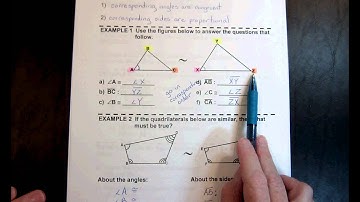 1) corresponding angles are congruent
2) corresponding sides are proportional
EXAMPLE 1 Use the figures below to answer the questions that
follow.
B
Y
~
A
C
X
Z
a) ∠A = ∠X
d) AB : XY
b) BC : YZ
e) ∠C = ∠Z
c) ∠B = ∠Y
f) CA : ZX
go in
corresponding
order
EXAMPLE 2 If the quadrilaterals below are similar, the
must be true?
~
About the angles:
About the side
∠A ≅
AB :